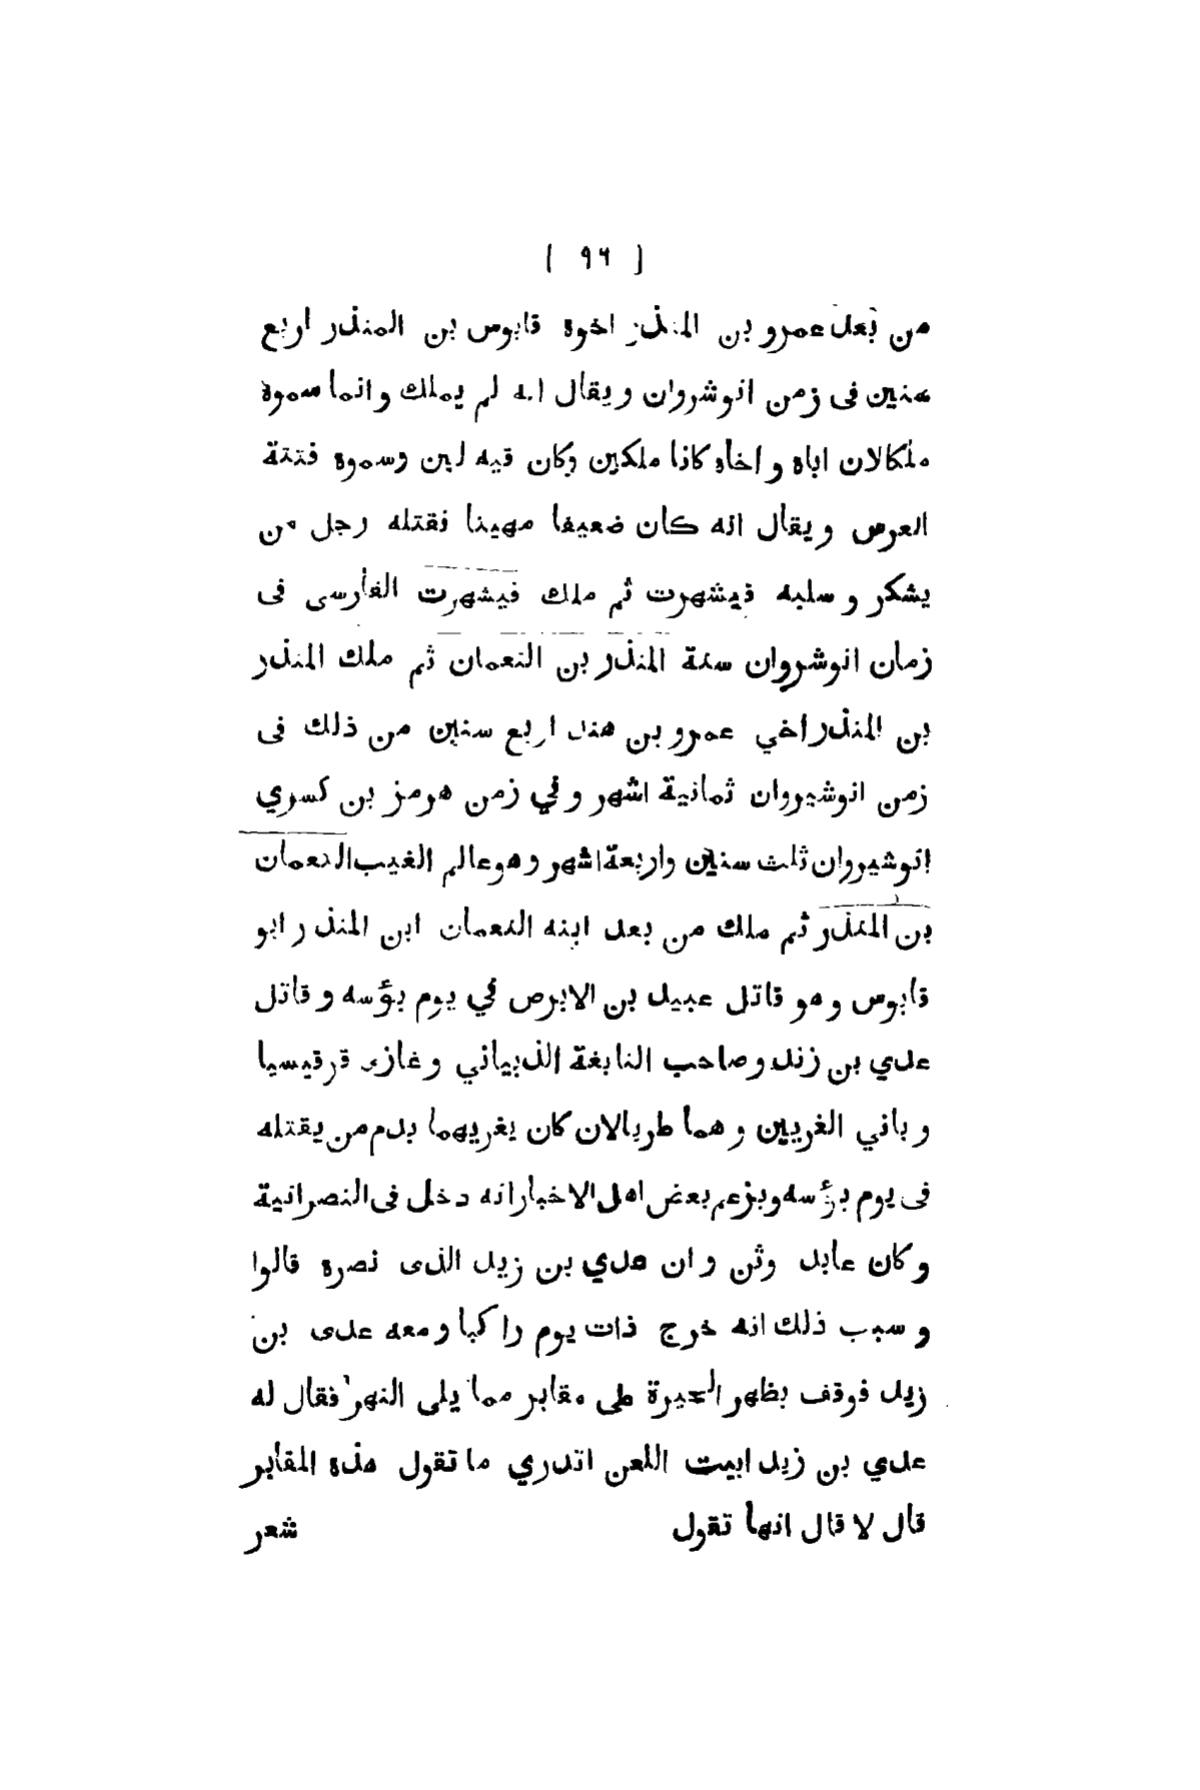 ( ٩٦ )
من بعد عمرو بن المنذر اخوه قابوس بن المنذر اربع
سنين فى زمن انوشروان ويقال انه لم يملك وانما سموة
ملكالان اباه و اخاه كانا ملكين وكان فيه لين وسموه فتنة
العرس ويقال انه كان ضعيفا مهينا فقتله رجل من
يشكر و سلبه فيشهرت ثم ملك فيشهرت الفارسى فى
زمان انوشروان سنة المنذر بن النعمان ثم ملك المنذر
بن المنذر اخي عمرو بن هند اربع سنين من ذلك فى
زمن انوشيروان ثمانية اشهر وفي زمن هرمز بن كسري
انوشيروان ثلث سنين واربعة اشهر وهو عالم الغيب النعمان
بن المنذر ثم ملك من بعد ابنه النعمان ابن المنذر ابو
قابوس وهو قاتل عبيد بن الابرص في يوم بؤسه و قاتل
عدي بن زند و صاحب النابغة الذبياني وغازى قرقيسيا
وباني الغريين وهما طربالان كان يغريهما بدم من يقتله
فى يوم بؤسه ويزعم بعض اهل الاخبار انه دخل فى النصرانية
وكان عابد وثن وان عدي بن زيد الذى نصره قالوا
و سبب ذلك انه خرج ذات يوم راكبا ومعه عدى بن
زيد فوقف بظهر الحيرة على مقابر مما يلى النهر فقال له
عدي بن زيد ابيت اللعن اتدري ما تقول هذه المقابر
قال لا قال انها تقول شعر